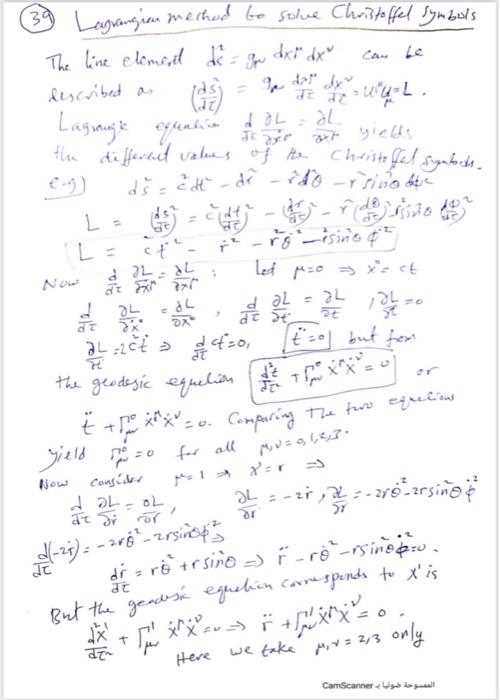 39 Lagrangian method to solve Christoffel Symbols
The line element ds² = g_μν dx^μ dx^ν can be
described as (ds/dτ)² = g_μν dx^μ/dτ dx^ν/dτ = U^μ U_μ = L.
Lagrange equation d/dτ ∂L/∂ẋ^μ = ∂L/∂x^μ yields
the different values of the Christoffel symbols.
e.g) ds² = c²dt² - dr² - r²dθ² - r²sin²θ dφ²
L = (ds/dτ)² = c²(dt/dτ)² - (dr/dτ)² - r²(dθ/dτ)² - r²sin²θ (dφ/dτ)²
L = c²ṫ² - ṙ² - r²θ̇² - r²sin²θ φ̇²
Now d/dτ ∂L/∂ẋ^μ = ∂L/∂x^μ : Let μ=0 ⇒ x⁰ = ct
d/dτ ∂L/∂ẋ⁰ = ∂L/∂x⁰ , d/dτ ∂L/∂ṫ = ∂L/∂t , ∂L/∂t = 0
∂L/∂ṫ = 2c²ṫ ⇒ d/dτ c²ṫ = 0, ẗ = 0 but from
the geodesic equation d²t/dτ² + Γ⁰_μν ẋ^μ ẋ^ν = 0 or
ẗ + Γ⁰_μν ẋ^μ ẋ^ν = 0. Comparing The two equations
yield Γ⁰_μν = 0 for all μ,ν = 0,1,2,3.
Now consider μ=1 ⇒ x¹ = r ⇒
d/dτ ∂L/∂ṙ = ∂L/∂r , ∂L/∂ṙ = -2ṙ , ∂L/∂r = -2rθ̇² - 2r sin²θ φ̇²
d/dτ (-2ṙ) = -2rθ̇² - 2r sin²θ φ̇² ⇒
dṙ/dτ = rθ̇² + r sin²θ ⇒ r̈ - rθ̇² - r sin²θ φ̇² = 0.
But the geodesic equation corresponds to x¹ is
d²x¹/dτ² + Γ¹_μν ẋ^μ ẋ^ν = 0 ⇒ r̈ + Γ¹_μν ẋ^μ ẋ^ν = 0.
Here we take μ,ν = 2,3 only
CamScanner الممسوحة ضوئيا بـ